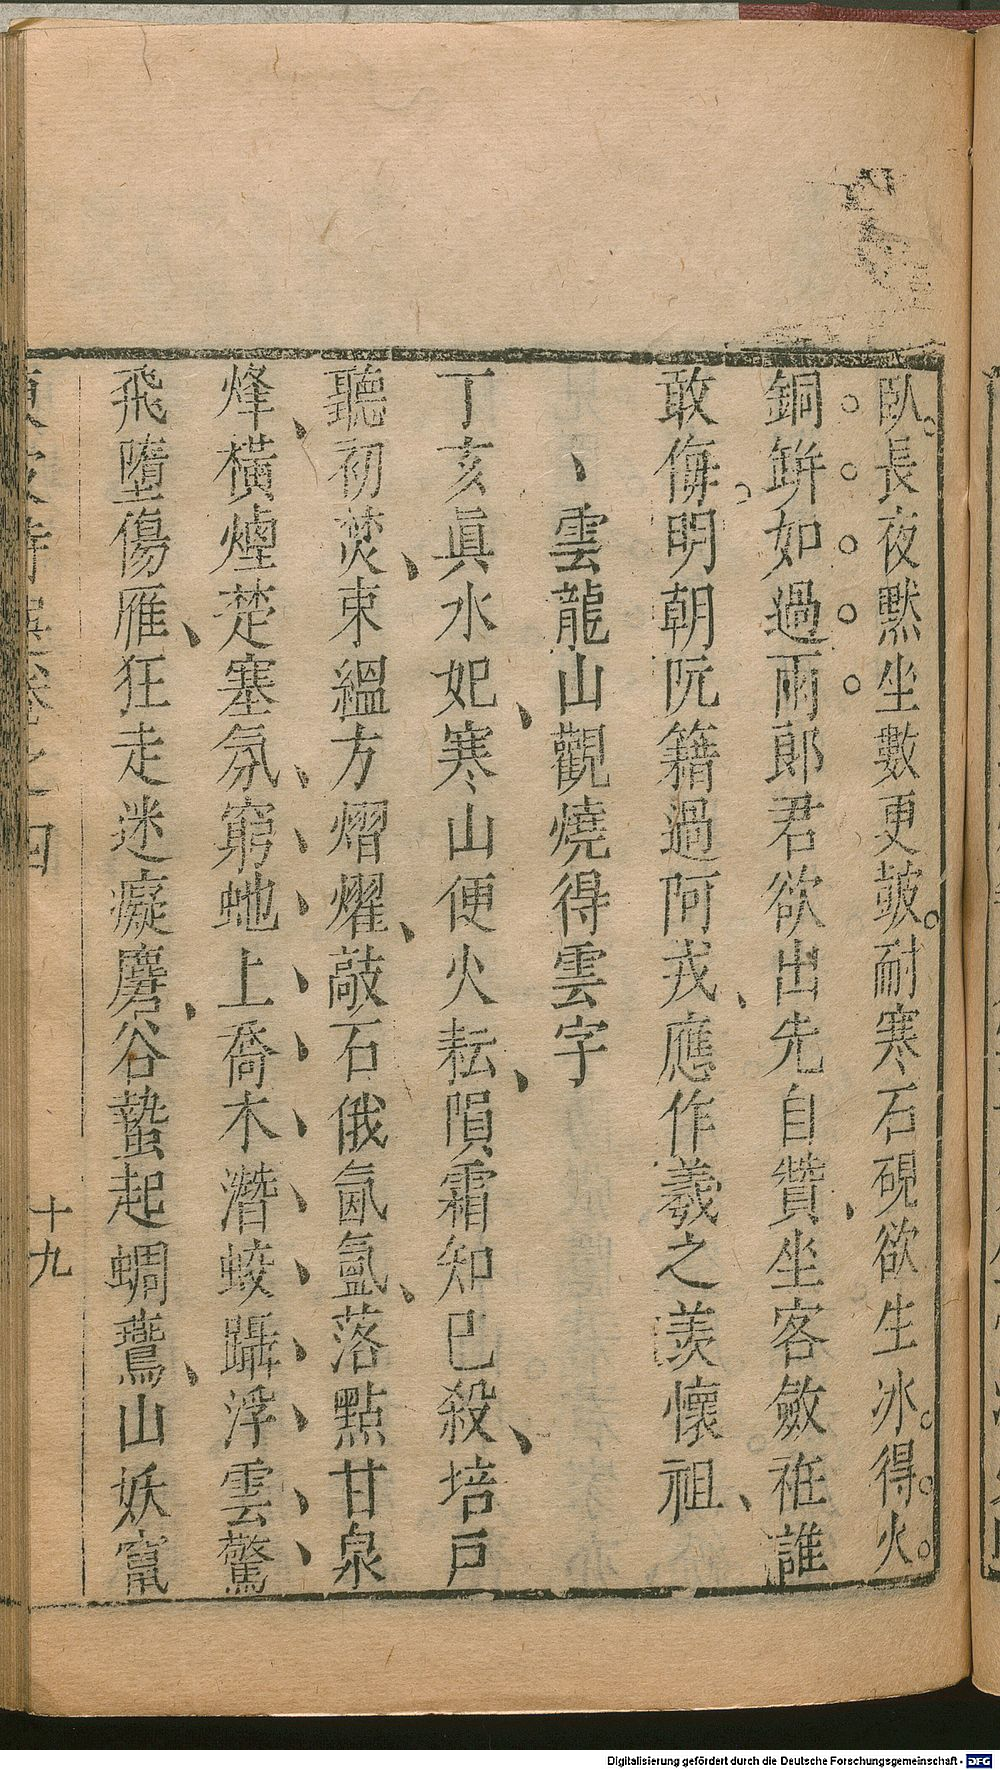 臥長夜默坐數更皷耐寒石硯欲生冰得火
銅缾如過雨郎君欲出先自贊坐客斂袵誰
敢侮明朝阮籍過阿戎應作羲之羡懷祖
雲龍山觀燒得雲字
丁亥眞水妃寒山便火耘隕霜知已殺培戸
聽初焚束緼方熠燿敲石俄氤氳落點甘泉
烽橫煙楚塞氛窮虵上喬木潛蛟躡浮雲驚
飛墮傷雁狂走迷癡麏谷蟄起蜩鷽山妖竄
卷之四
十九
Digitalisierung gefördert durch die Deutsche Forschungsgemeinschaft - DFG